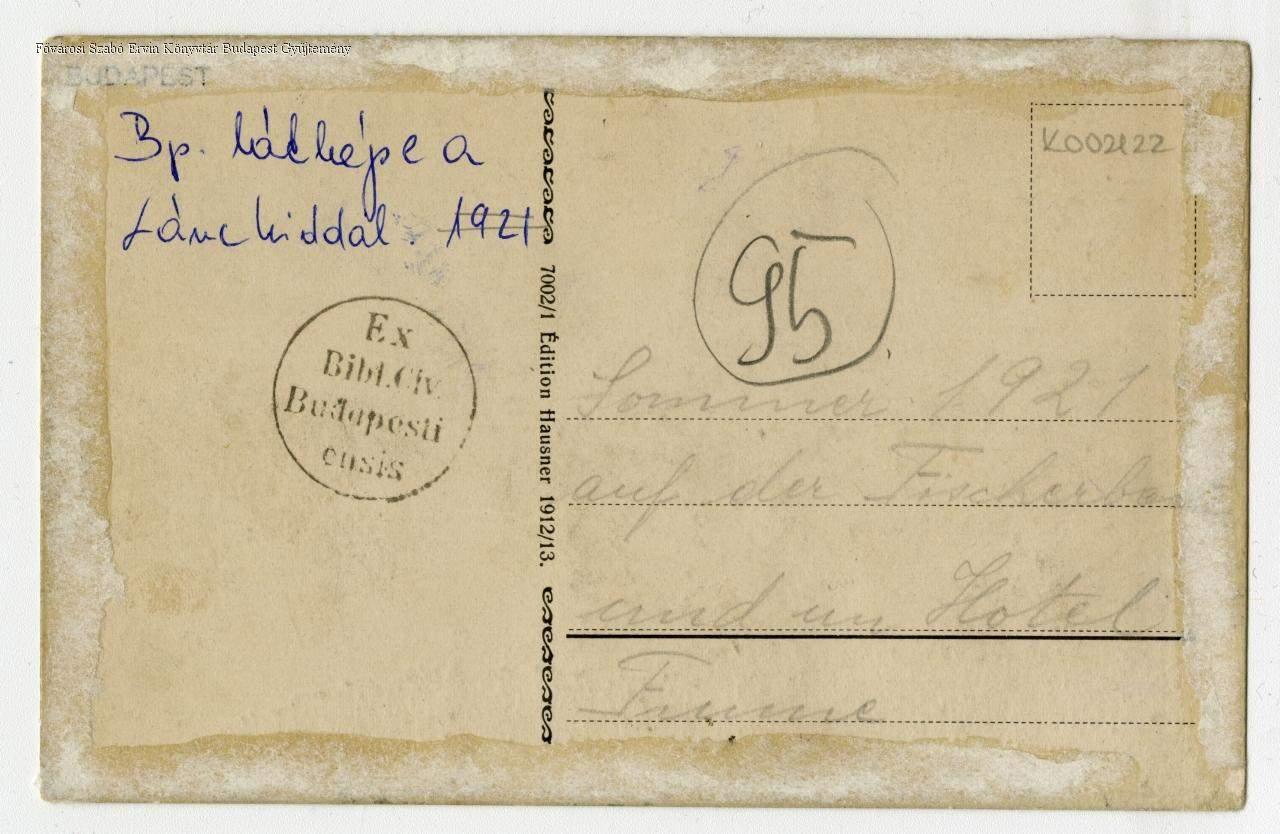 Fővárosi Szabó Ervin Könyvtár Budapest Gyűjtemény
BUDAPEST
Bp. látképe a
Lánchiddal. 1921
Ex
Bibl. Civ.
Budapesti
ensis
7002/1 Édition Hausner 1912/13.
95
Sommer 1921
auf der
und im Hotel
Fiume